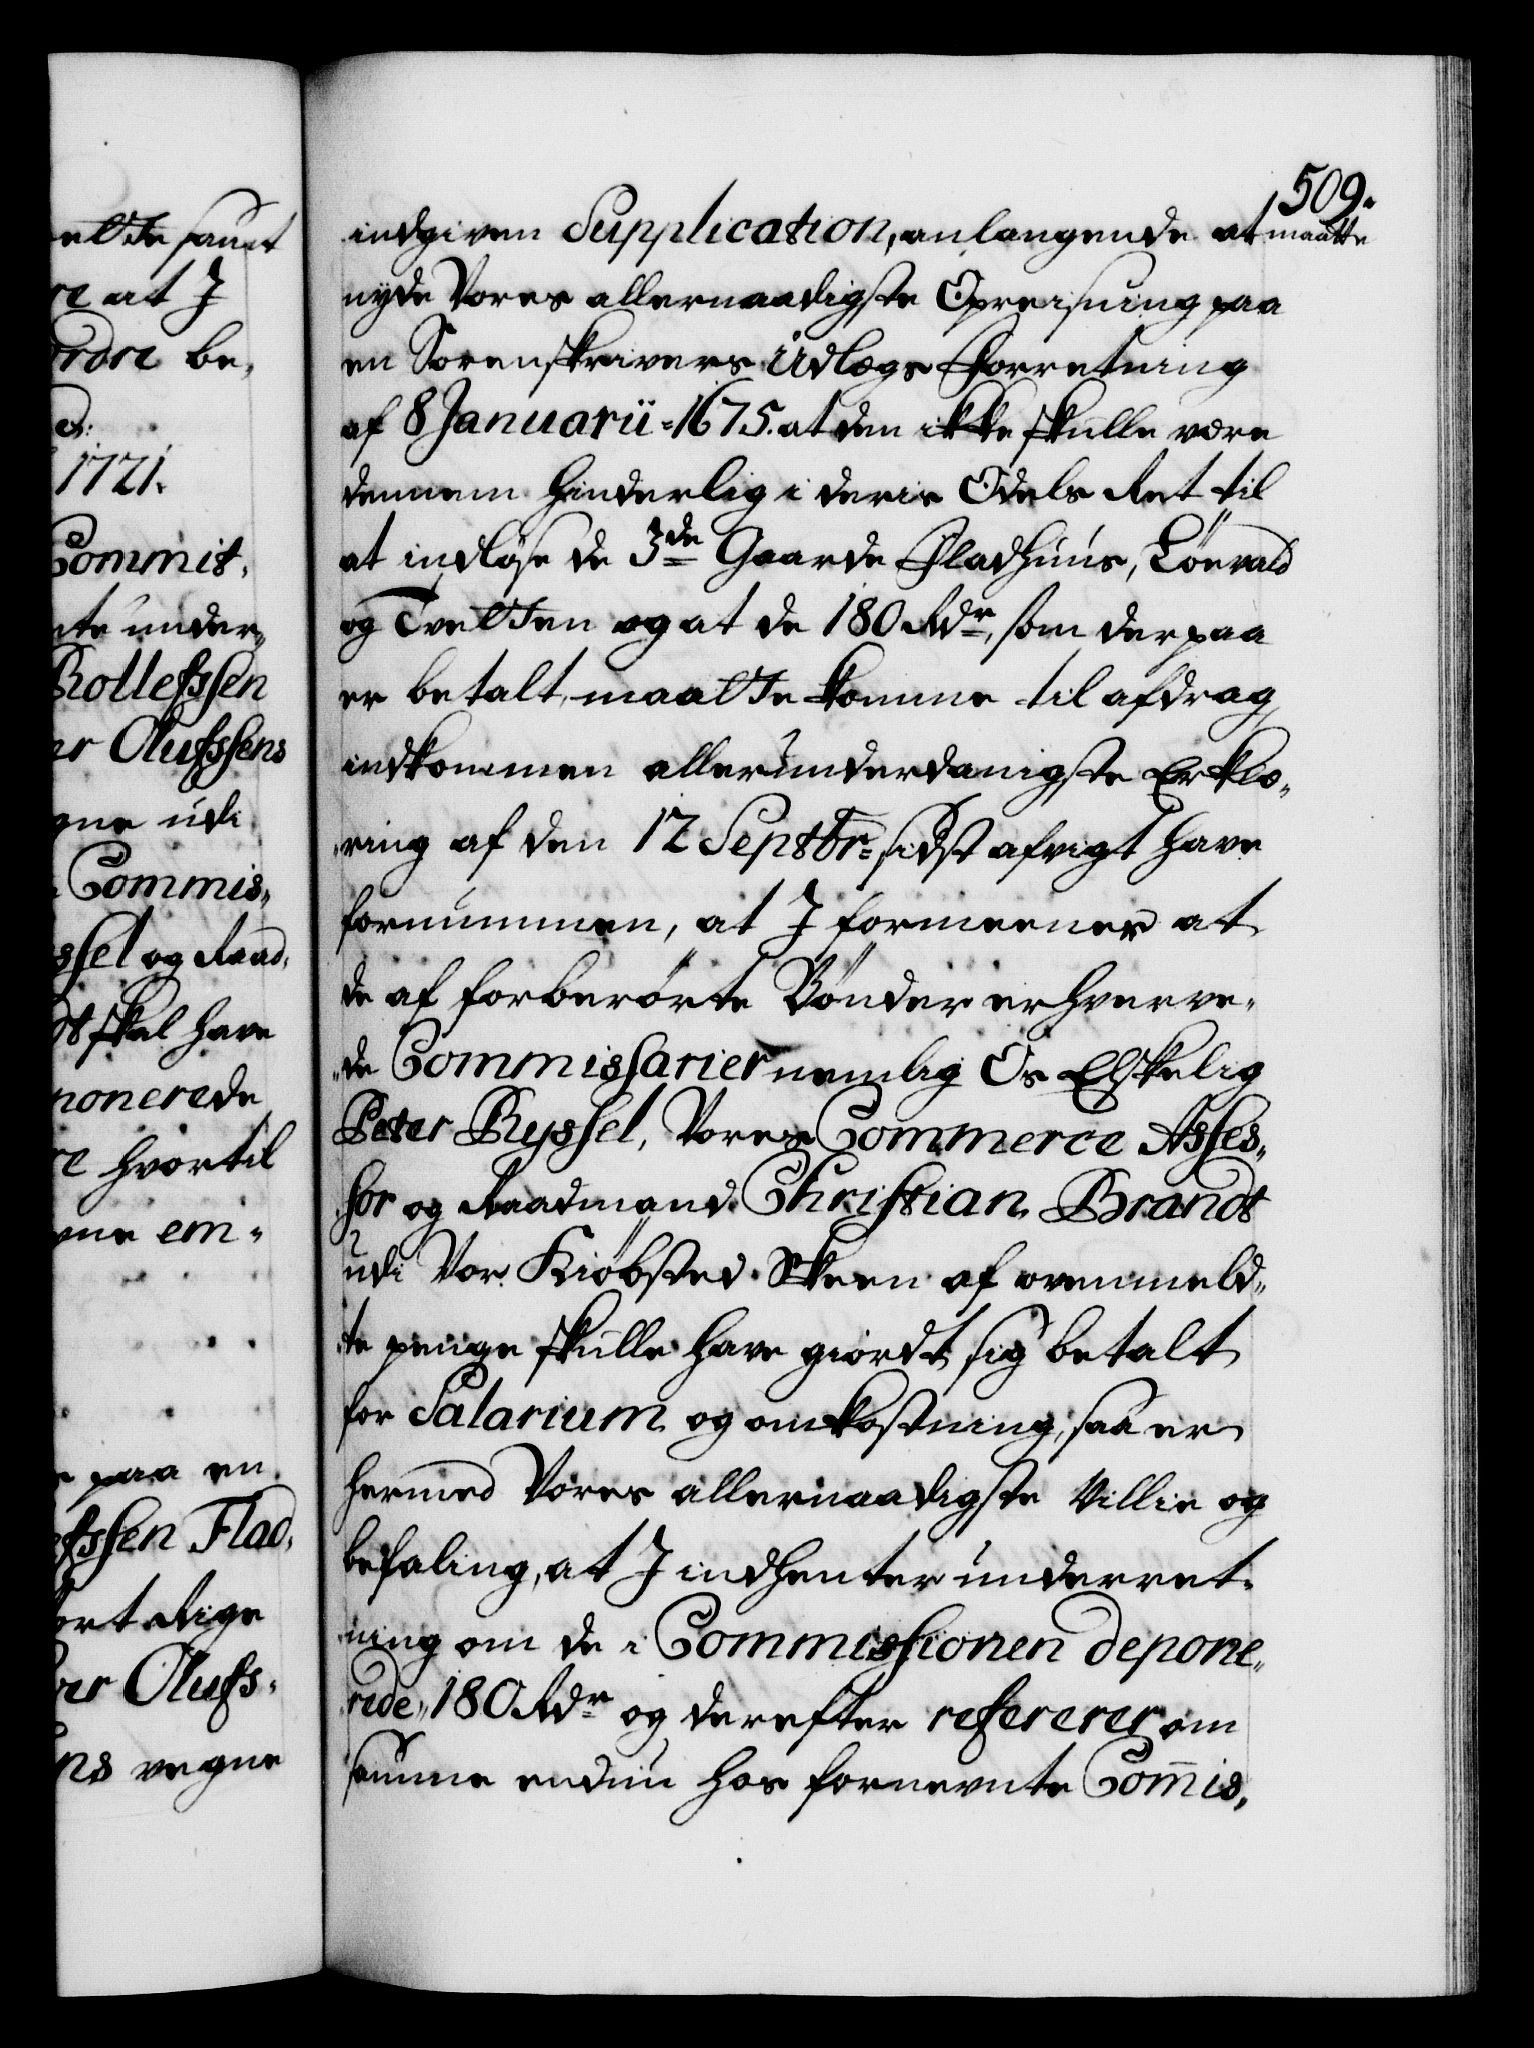 ette samt
re at I
ordre be„
d.
1721.
Commis„
te under„
Rollefssen
er Olufssens
gne udi
Commis„
ssel og Raad„
skal have
ponerede
e hvortil
gne em„
paa en
efssen Flad„
ort Rige
er Olufs„
ens vegne
509.
indgiven Supplication, anlangende at maatte
nyde Vores allernaadigste Opreisning paa
en Sorenskrivers Udlægs Forretning
af 8 Januarii 1675. at den ikke skulle være
dennem hinderlig i deris Odels Ret til
at indløse de 3de Gaarde Fladhuus, Lönvald
og Tvetten og at de 180 Rdr, som derpaa
er betalt, maatte komme til afdrag,
indkommen allerunderdanigste Erklæ„
ring af den 12 Septbr: sidst afvigt have
fornummen, at I formeener at
de af forberørte Bønder erhverve„
de Commissarier nemlig Os Elskelig
Peter Ryssel, Vores Commerce Asses„
sor og Raadmand Christian Brandt
udi Vor Kiøbsted Skeen af ovenmeld„
te penge skulle have giordt sig betalt
for Salarium og omkostning, saa er
hermed Vores allernaadigste Villie og
befaling, at I indhenter underret„
ning om de i Commissionen depone„
rede 180 Rdr og derefter refererer om
samme endnu hos fornevnte Com̅is„